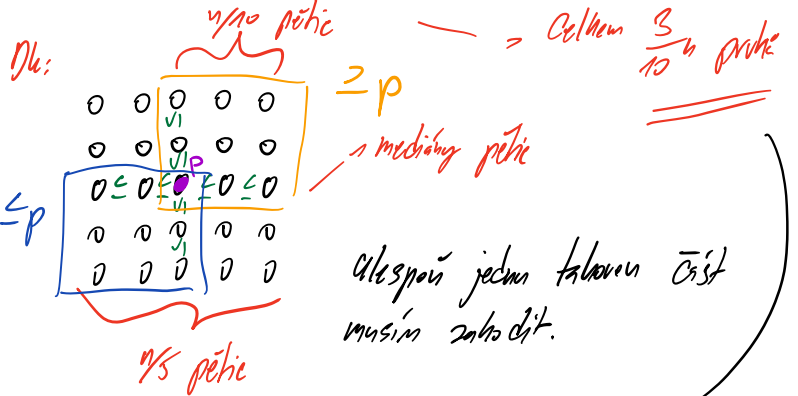 n/10 pětic
Dk:
Celkem 3/10 n prvků
≥p
mediány pětic
p
≤p
alespoň jednu takovou část
musím zahodit.
n/5 pětic